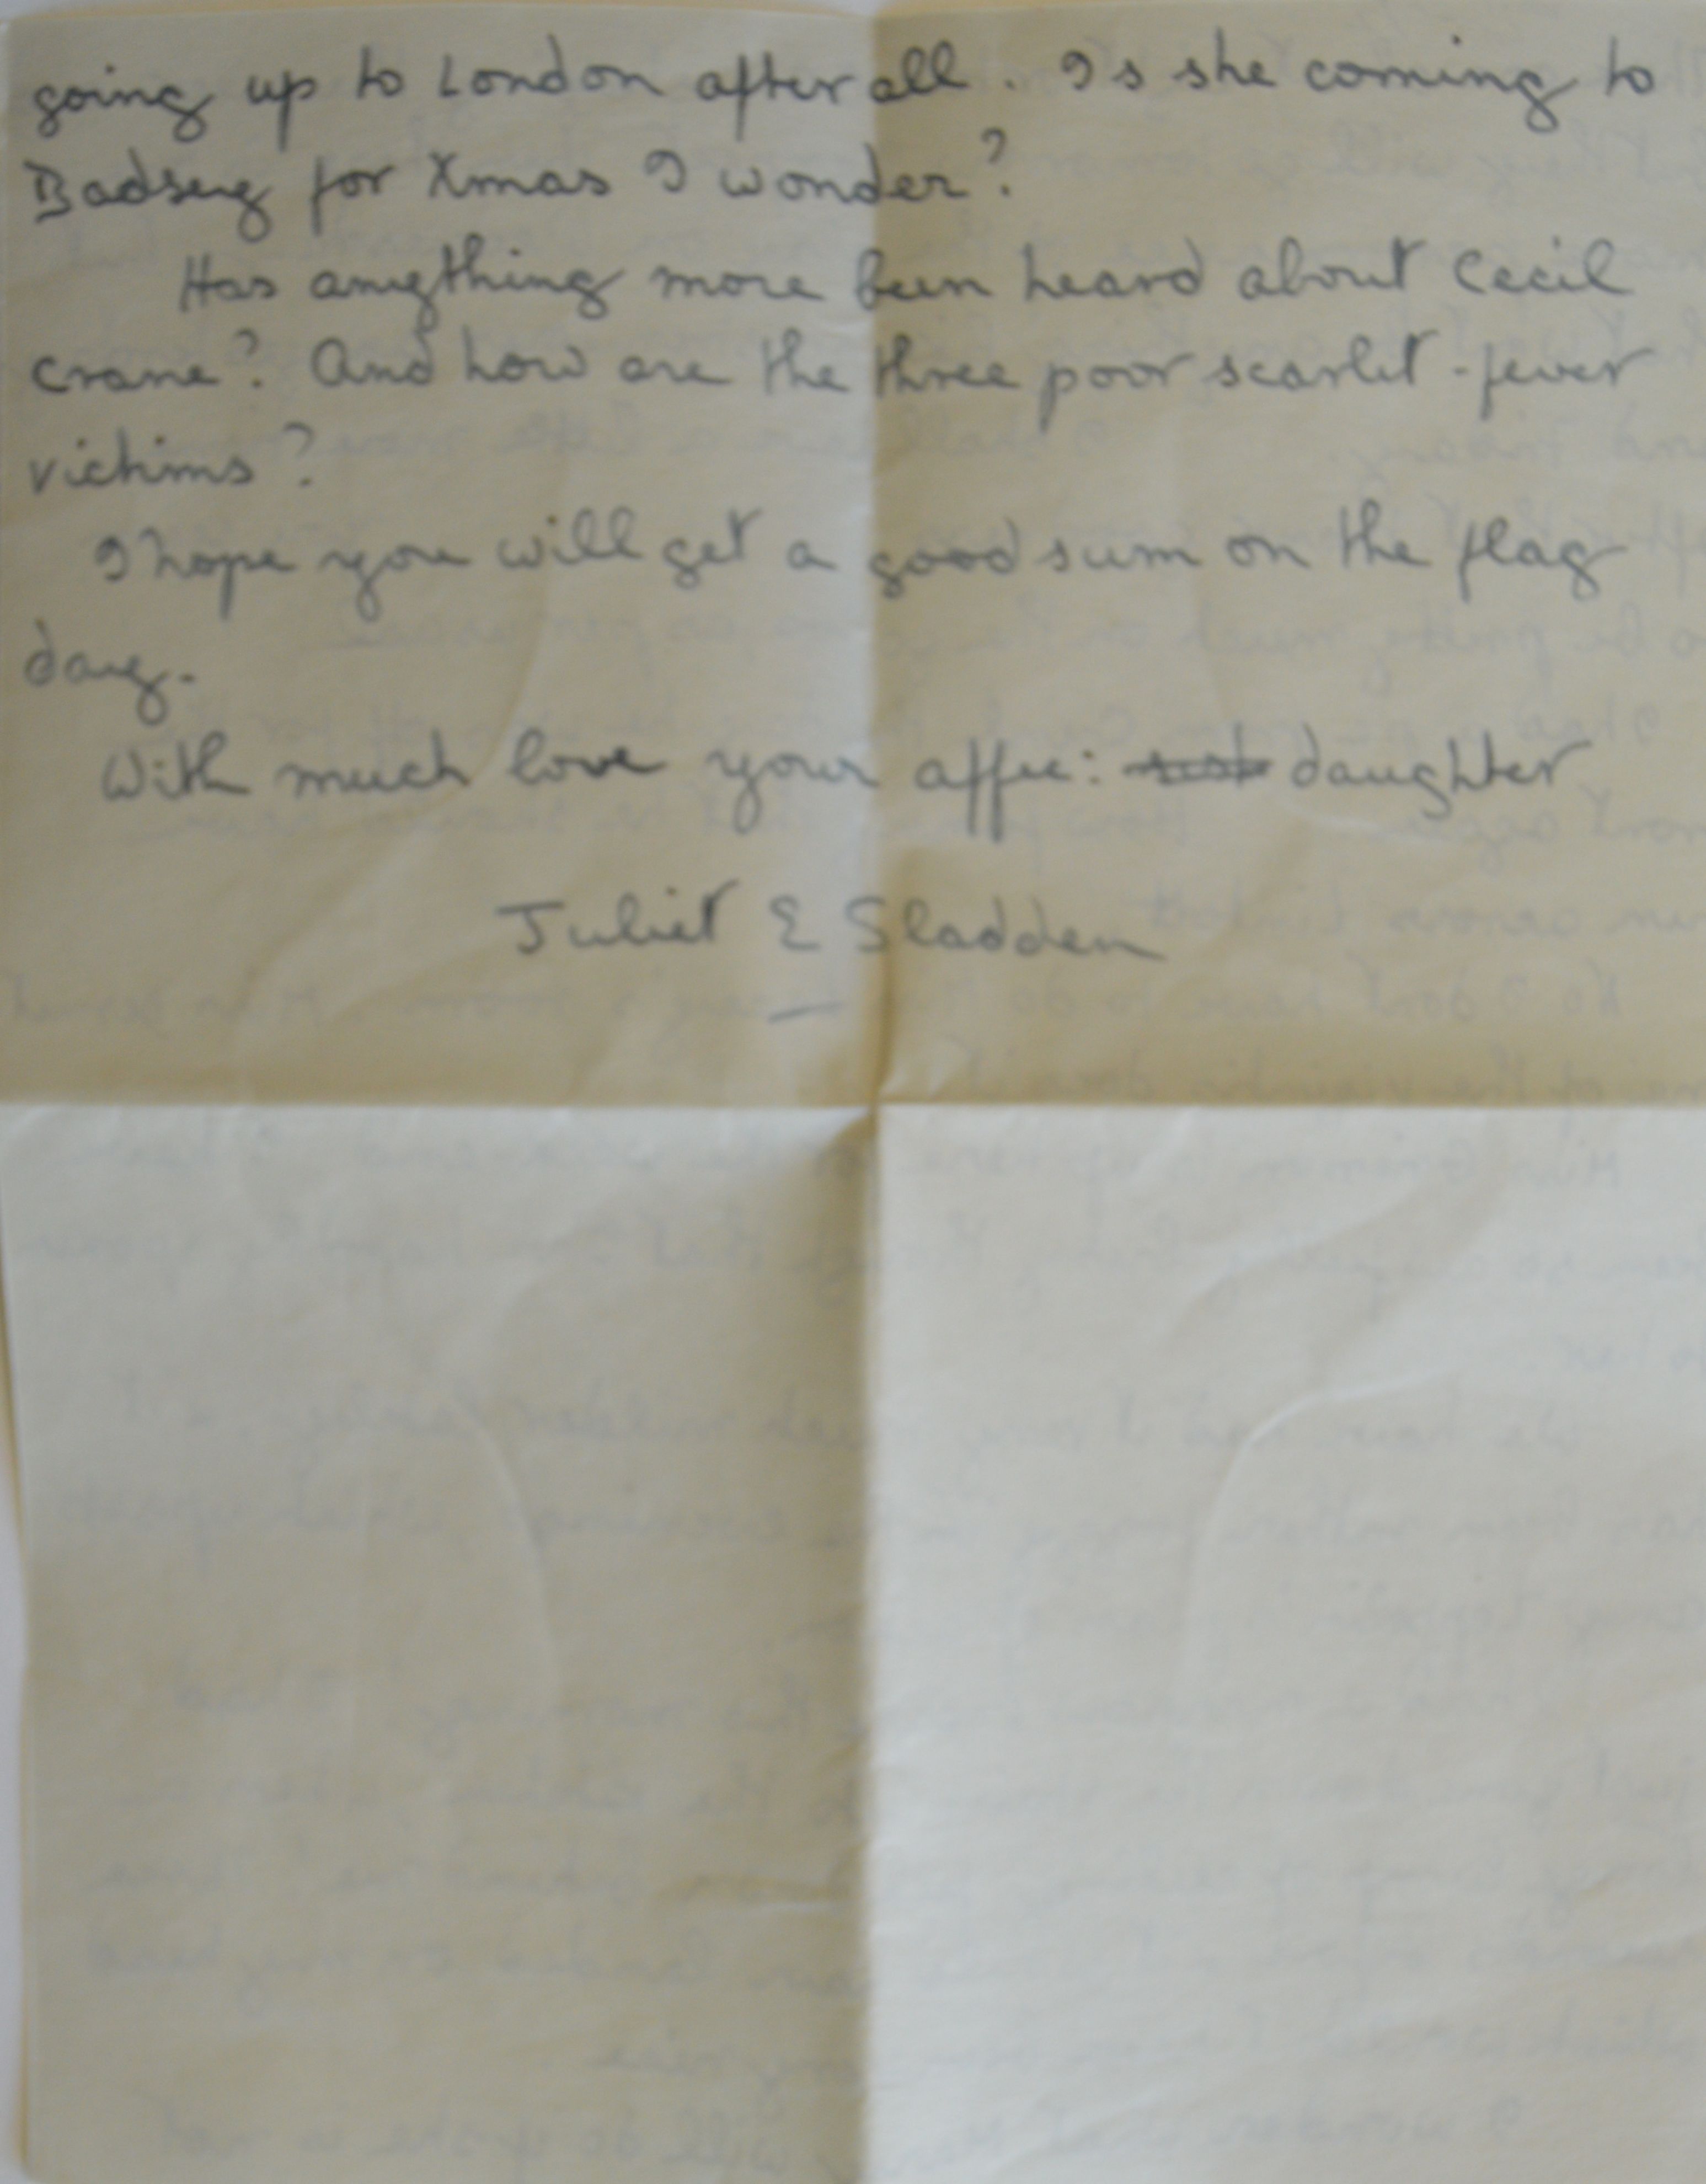 going up to London after all. Is she coming to
Badsey for Xmas I wonder?
Has anything more been heard about Cecil
Crane? And how are the three poor scarlet-fever
victims?
I hope you will get a good sum on the flag
day.
With much love your affec: daughter
Juliet E Sladden